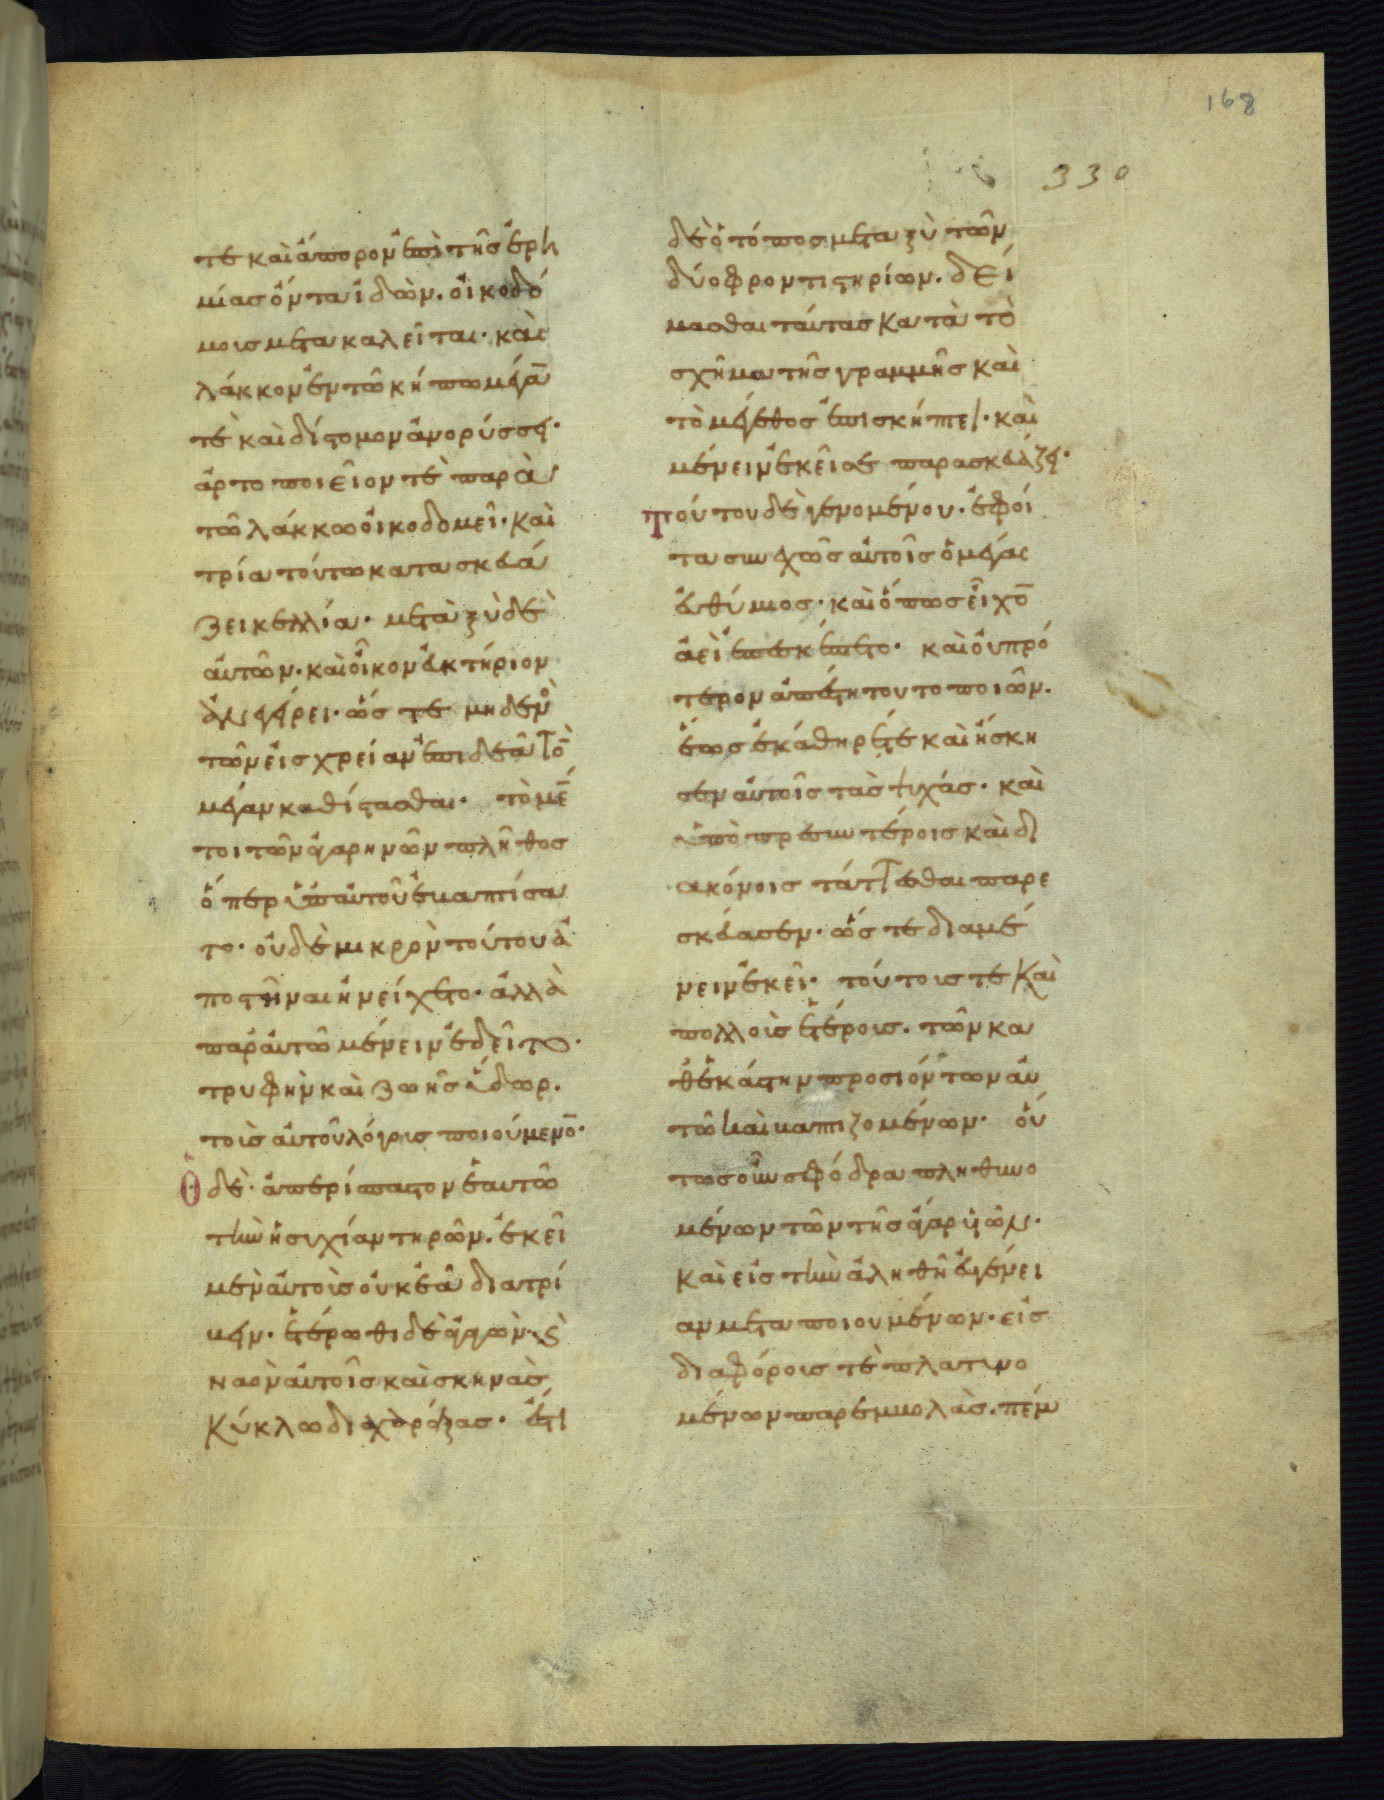 168
330
τε καὶ ἄπορον ἐπὶ τῆς ἐρη
μίας ὄντα ἰδὼν. οἰκοδό
μοις μετακαλεῖται· καὶ
λάκκον ἐν τῶ κήπω μέγα̅
τὲ καὶ δίστομον ἀνορύσσει·
ἀρτοποιεῖον τὲ παρὰ
τῶ λάκκω οἰκοδομεῖ· καὶ
τρία τούτω κατασκευά
ζει κελλία· μεταξὺ δὲ
αὐτῶν· καὶ οἶκον εὐκτήριον
ἀνεγείρει· ὥς τε μηδενὸ
τῶν εἰς χρείαν ἐπιδεᾶ τὸ
μέγαν καθίστασθαι· τὸ μέ̅
τοι τῶν ἀγαρηνῶν πλῆθος
ὅπερ ὑπ αὐτοῦ ἐβαπτίσα
το· οὐδὲ μικρὸν τούτου ἀ
ποστῆναι ἠνείχετο· ἀλλὰ
παρ αὐτῶ μένειν ἐδεῖτο·
τρυφὴν καὶ ζωῆς ὕδωρ.
τοὶς αὐτοῦ λόγοις ποιούμενο̅·
Ὁ δὲ· ἀπερίσπαστον ἑαυτῶ
τὴν ἡσυχίαν τηρῶν. ἐκεῖ
μὲν αὐτοὶς οὐκ ἐᾶ διατρί
βειν· ἑτέρωθι δὲ ἀγαγὼν· ϗ
ναὸν αὐτοῖς καὶ σκηνὰς
κύκλω διαχαράξας· ἔτι
δὲ ὁ τόπος μεταξὺ τῶν
δύο φροντιστηρίων. δεί
μασθαι ταύτας κατὰ τὸ
σχῆμα τῆς γραμμῆς καὶ
τὸ μέγεθος ἐπισκήπτει· καὶ
μένειν ἐκεῖσε παρασκευάζει·
Τούτου δὲ γενομένου. ἐφοί
τα συνεχῶς αὐτοῖς ὁ μέγας
εὐθύμιος· καὶ ὅπως εἶχο̅
ἀεὶ ἐπεσκέπτετο· καὶ οὐ πρό
τερον ἀπέστη τουτο ποιῶν.
ἕως ἐκάθηρέτε καὶ ἤσκη
σεν αὐτοῖς τὰς ψυχάς· καὶ
ὑπὸ πρεσβυτέροις καὶ δι
ακόνοις τάττεσθαι παρε
σκεύασεν· ὥς τε διαμέ
νειν ἐκεῖ· τούτοις τε καὶ
πολλοὶς ἑτέροις. τῶν κα
θἑκάστην προσιόντων αὐ
τῶ καὶ βαπτιζομένων· οὕ
τως οὖν σφόδρα πληθυνο
μένων τῶν τῆς ἀγαρ υἱῶν·
καὶ εἰς τὴν ἀληθῆ εὐγένει
αν μεταποιουμένων· εἰς
διαφόροις τὲ πλατυνο
μένων παρεμβολὰς. πέμ